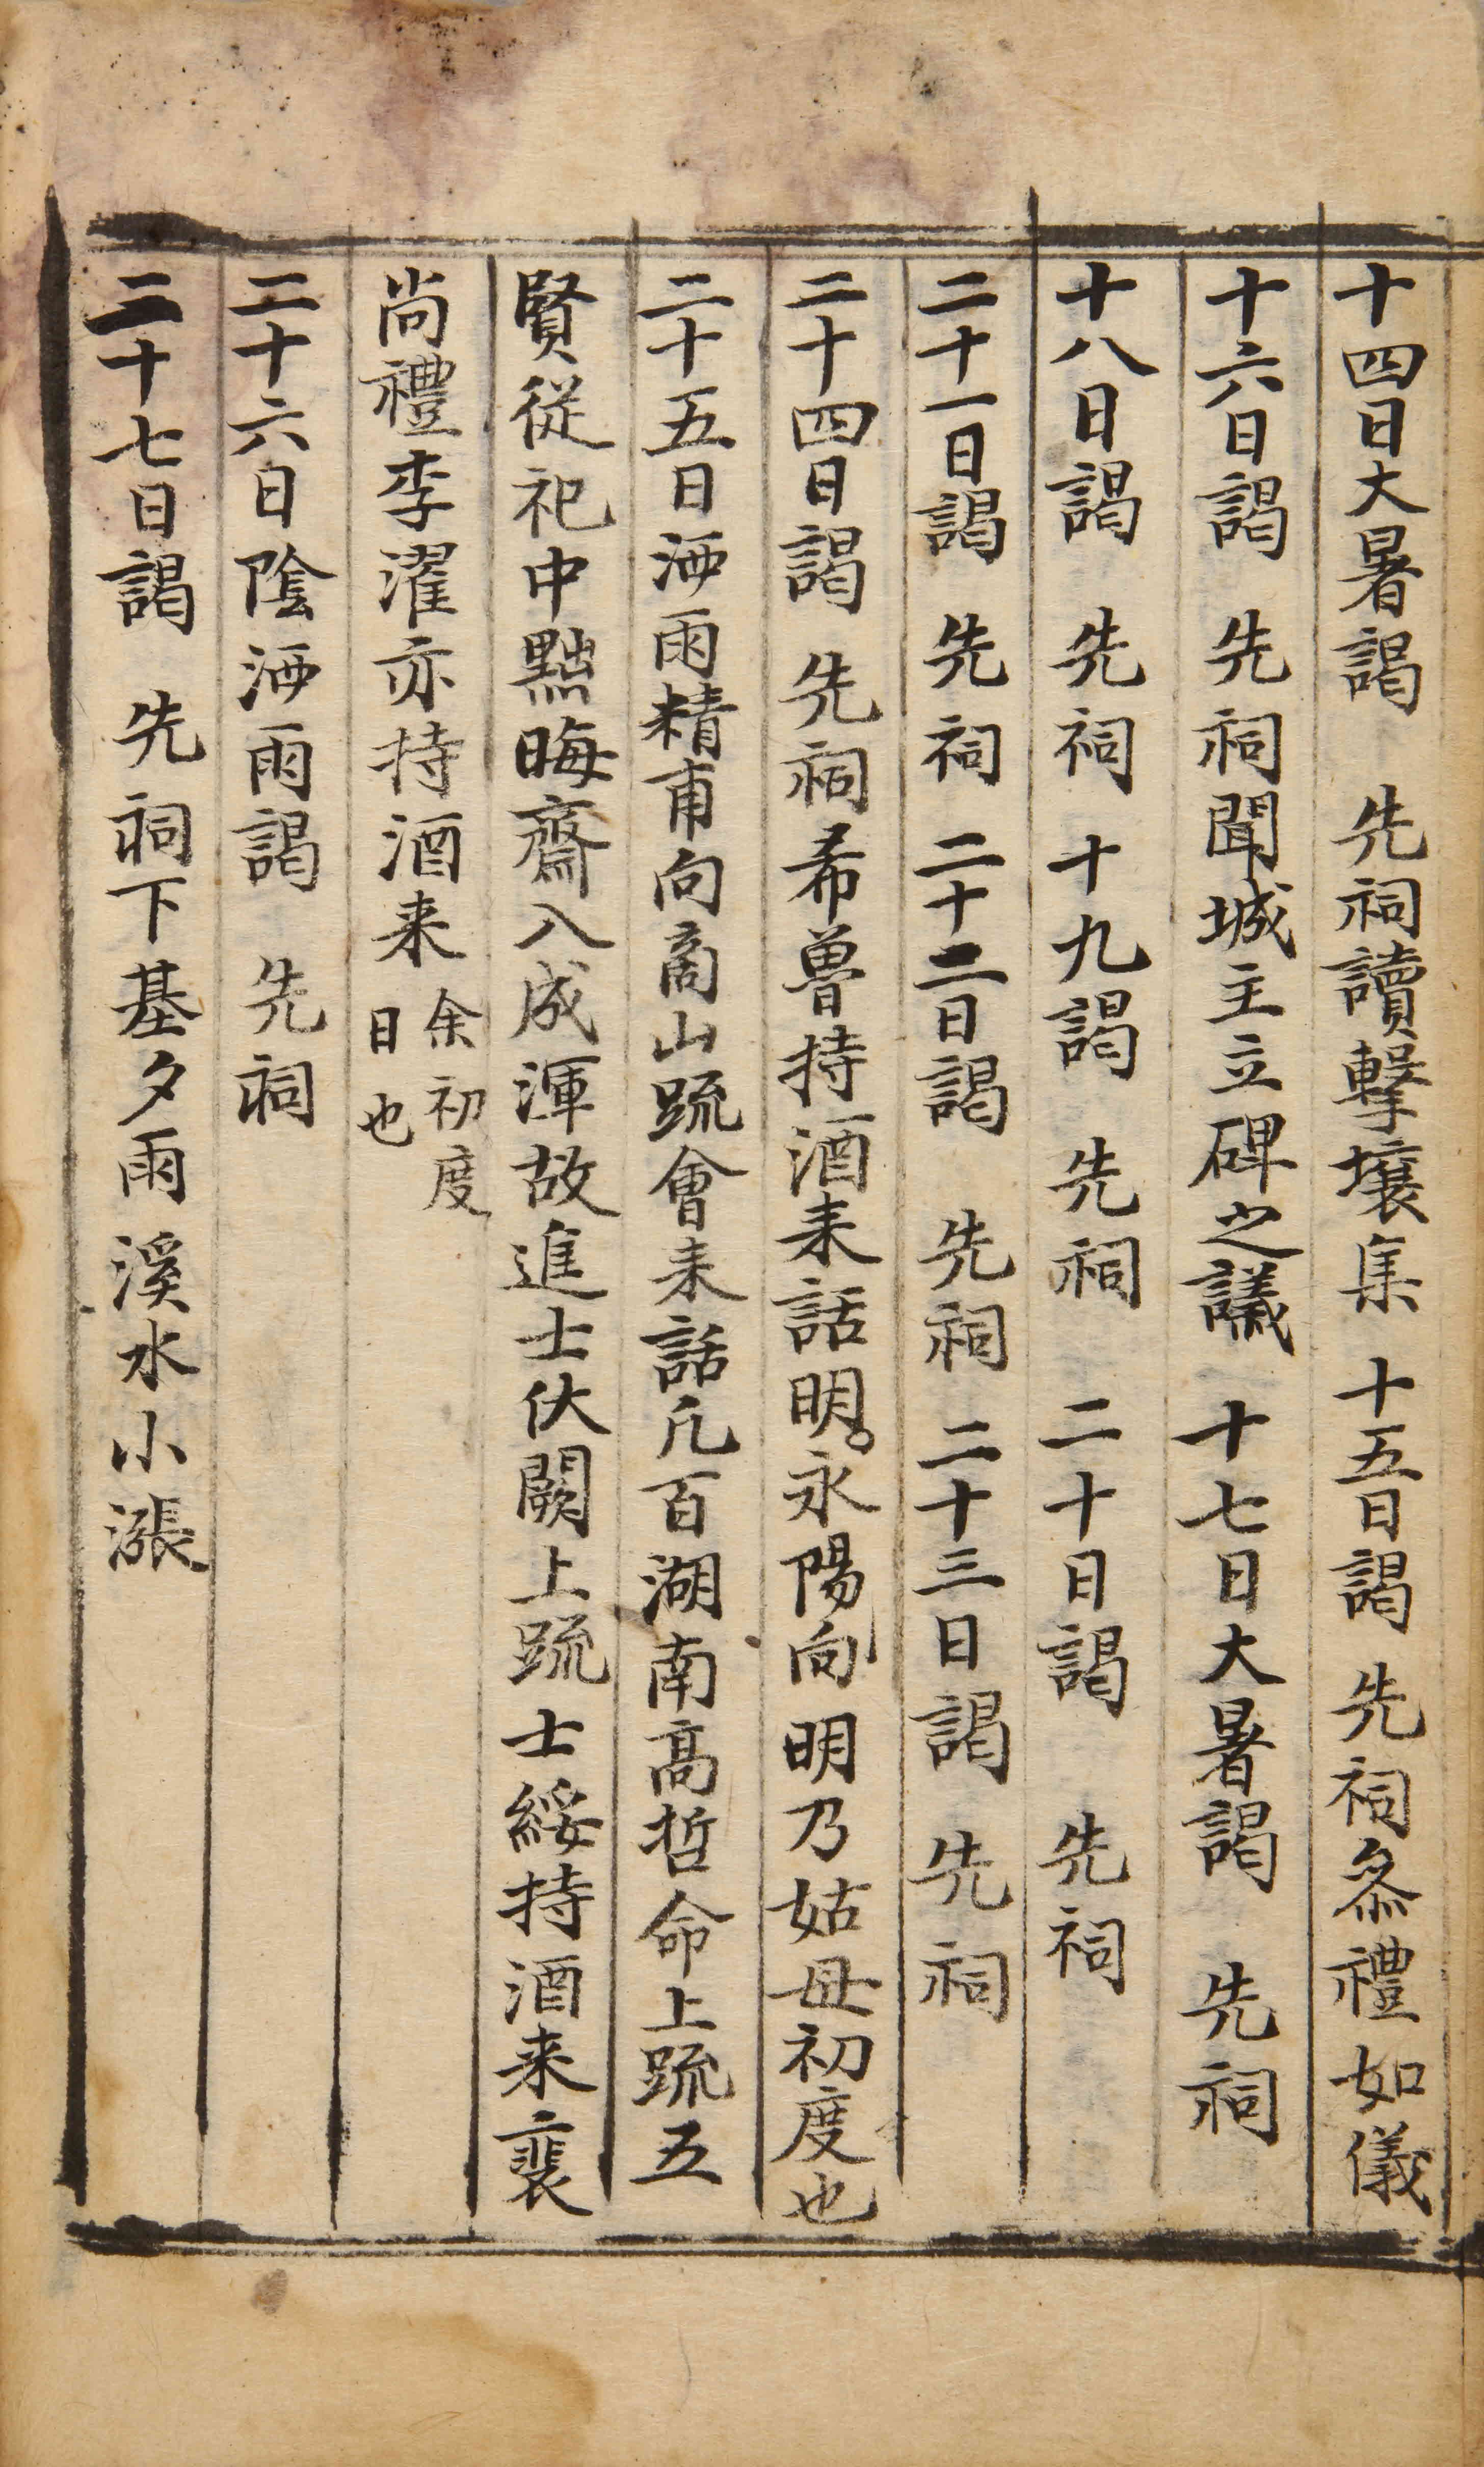 十四日大暑謁　先祠讀擊壤集　十五日謁　先祠叅禮如儀
十六日謁　先祠聞城主立碑之議　十七日大暑謁　先祠
十八日謁　先祠　十九謁　先祠　二十日謁　先祠
二十一日謁　先祠　二十二日謁　先祠　二十三日謁　先祠
二十四日謁　先祠希魯持酒来話明。永陽向明乃姑母初度也
二十五日洒雨精甫向商山疏會来話凡百湖南高哲命上疏五
賢從祀中黜晦齋入成渾故進士伏闕上疏士綏持酒来裵
尚禮李濯亦持酒来余初度日也
二十六日陰洒雨謁　先祠
二十七日謁　先祠下基夕雨溪水小漲